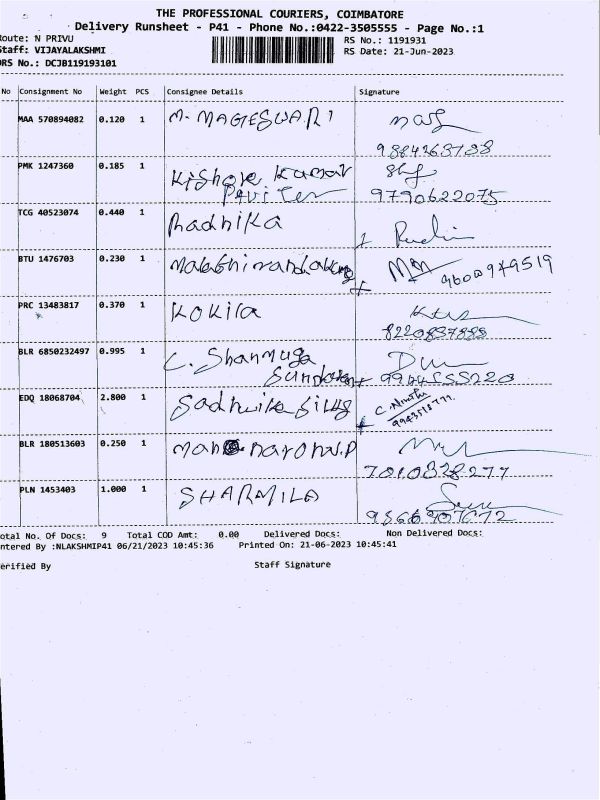 THE PROFESSIONAL COURIERS, COIMBATORE
Delivery Runsheet - P41 - Phone No.:0422-3505555 - Page No.:1
oute: N PRIVU
RS No.: 1191931
Staff: VIJAYALAKSHMI
RS Date: 21-Jun-2023
DRS No.: DCJB119193101
No Consignment No Weight PCS Consignee Details Signature
MAA 570894082 0.120 1 M. MAGESWARI
9884263738
PMK 1247360 0.185 1 Kishore Kumar
9790622075
TCG 40523074 0.440 1 Radhika
BTU 1476703 0.230 1 9600949519
PRC 13483817 0.370 1 KOKila
8220837888
BLR 6850232497 0.995 1 C. Shanmuga
Sundaram
EDQ 18068704 2.800 1 Sadhwika Silks
BLR 180513603 0.250 1
7010828277
PLN 1453403 1.000 1 SHARMILA
otal No. Of Docs: 9 Total COD Amt: 0.00 Delivered Docs: Non Delivered Docs:
ntered By :NLAKSHMIP41 06/21/2023 10:45:36 Printed On: 21-06-2023 10:45:41
erified By Staff Signature